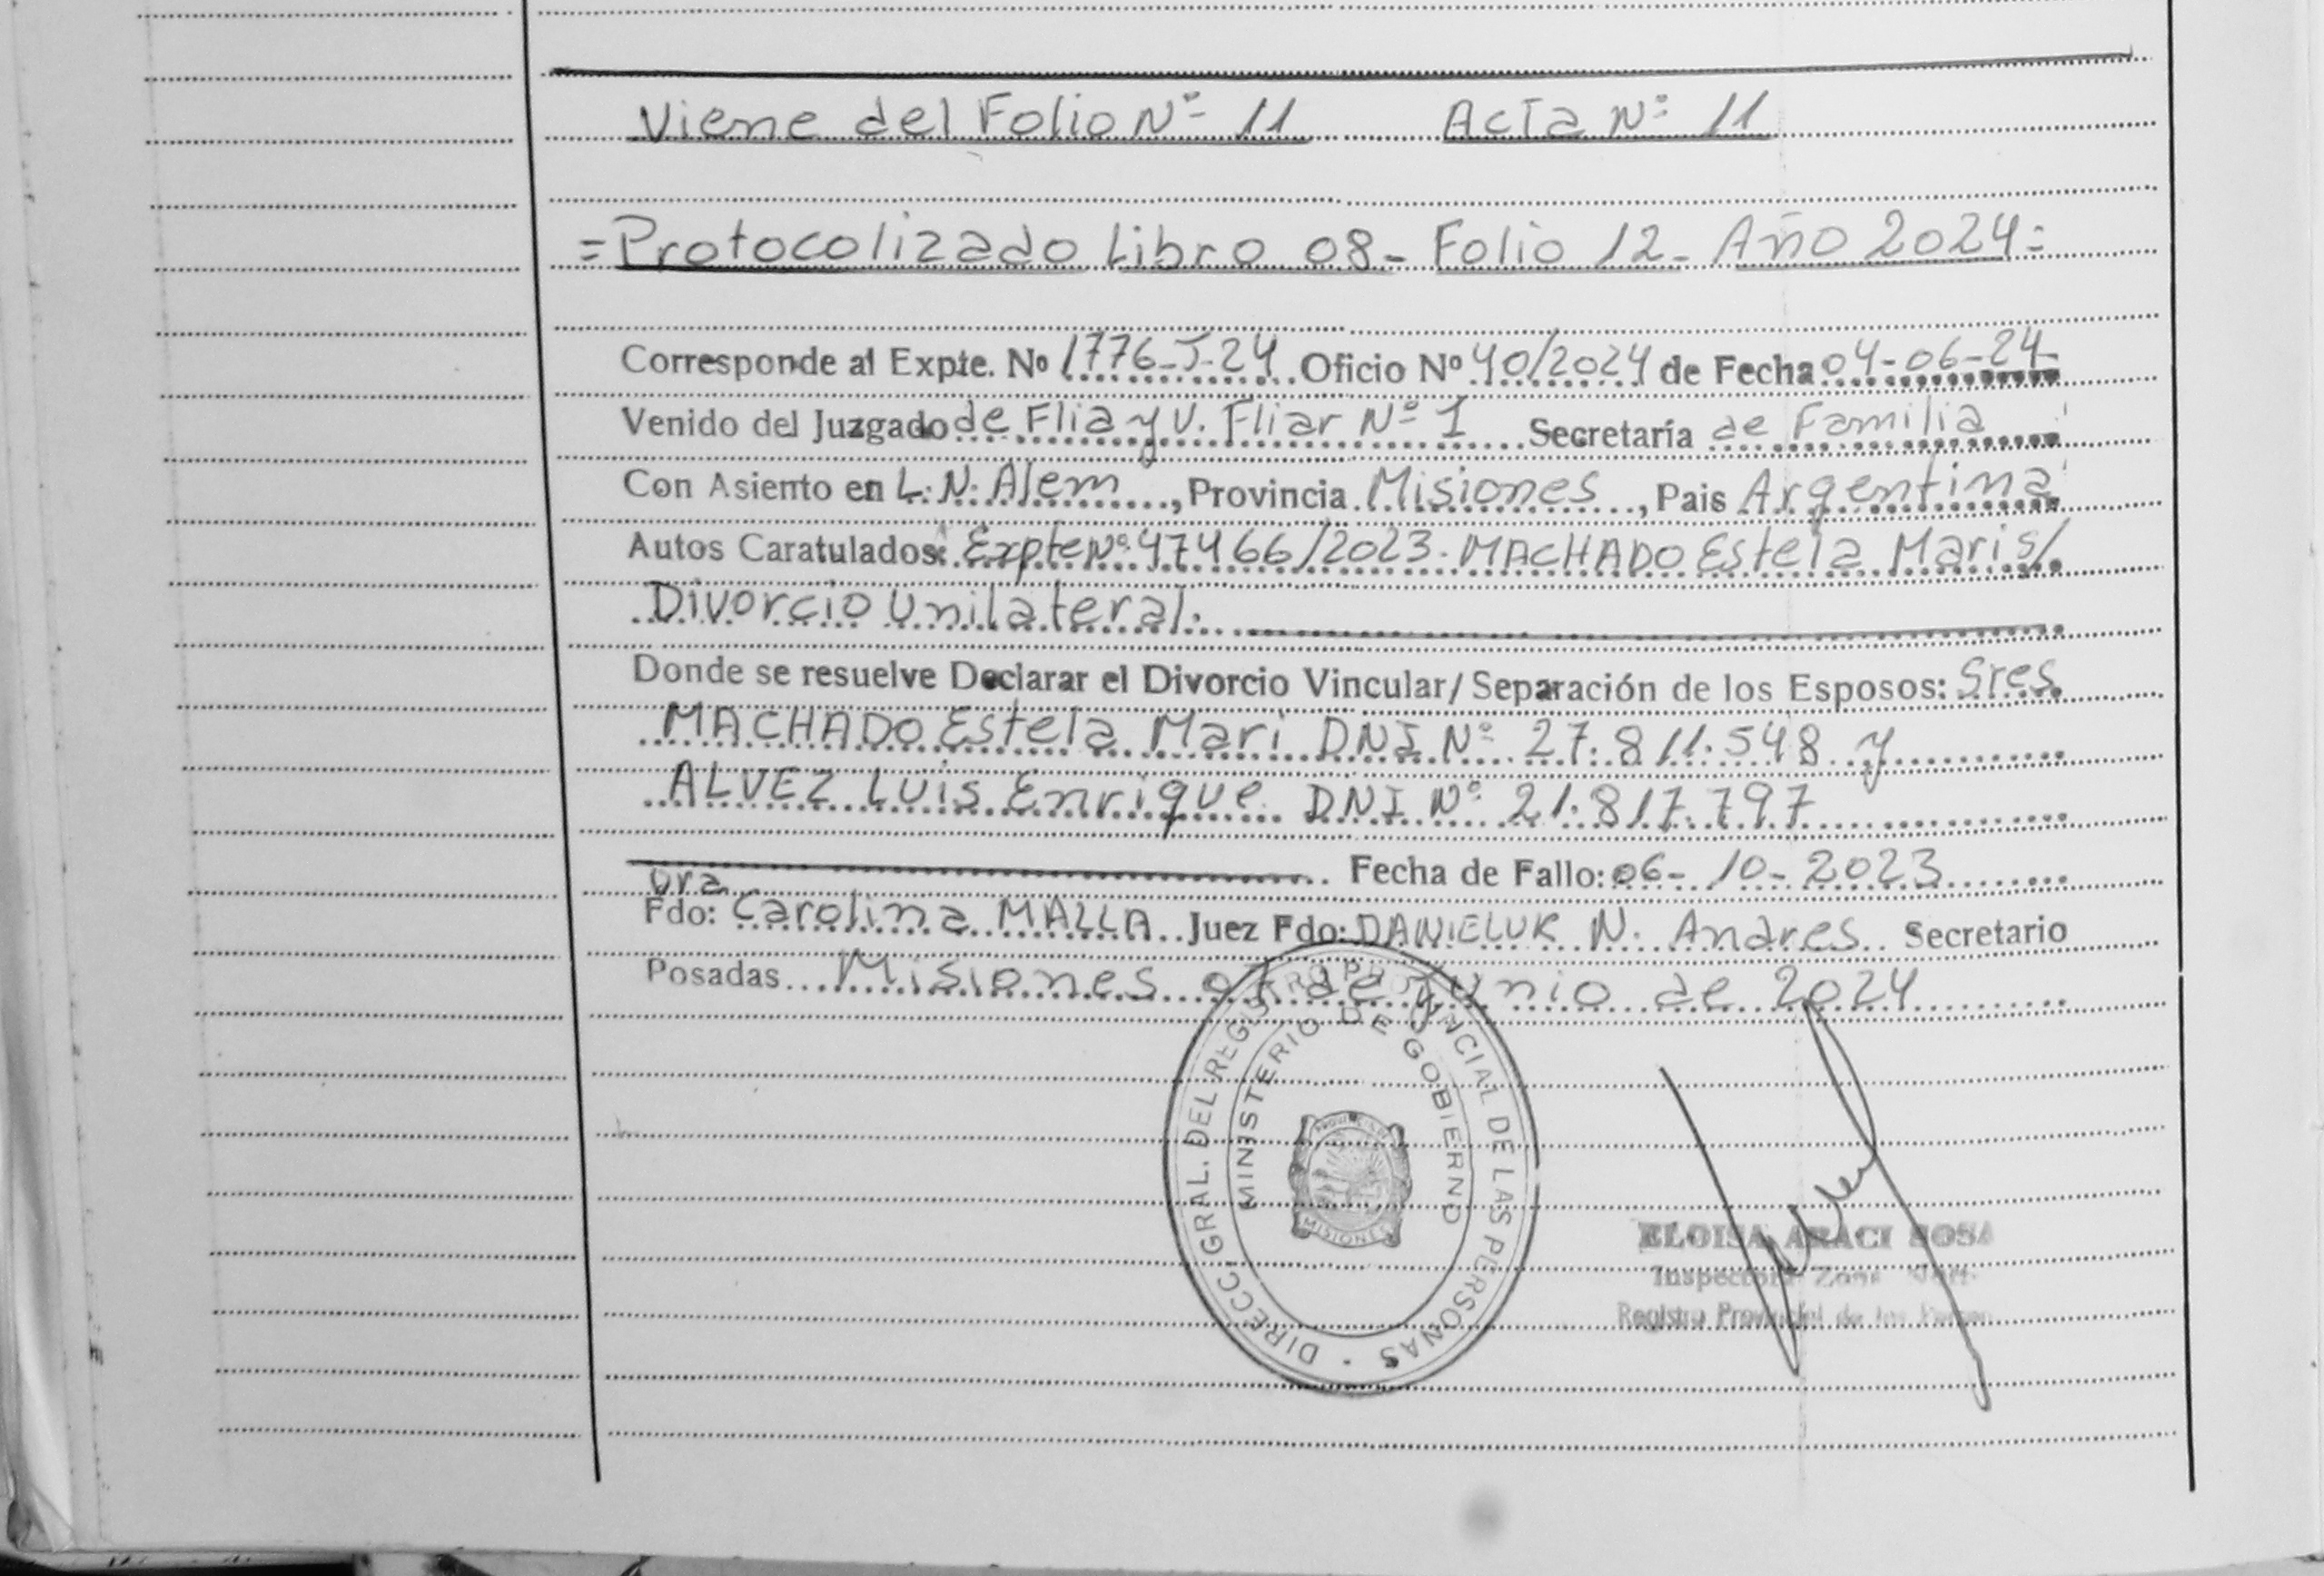 Viene del Folio Nº 11 Acta Nº 11
=Protocolizado Libro 08- Folio 12- Año 2024=
Corresponde al Expte. Nº 1776-J-24 Oficio Nº 40/2024 de Fecha 04-06-24-
Venido del Juzgado de Flia y V. Fliar Nº 1 Secretaría de Familia
Con Asiento en L.N. Alem, Provincia Misiones, Pais Argentina
Autos Caratulados: Expte Nº 47466/2023. MACHADO Estela Maris/
Divorcio Unilateral.
Donde se resuelve Declarar el Divorcio Vincular/Separación de los Esposos: Sres
MACHADO Estela Mari DNI Nº 27.811.548 y
ALVEZ Luis Enrique DNI Nº 21.817.797
Fecha de Fallo: 06-10-2023
Dra
Fdo: Carolina MALLA Juez Fdo: DANIELUK N. Andres Secretario
Posadas Misiones 07 de Junio de 2024
DIRECC. GRAL. DEL REGISTRO PROVINCIAL DE LAS PERSONAS
MINISTERIO DE GOBIERNO
MISIONES
ELOISA ARACI SOSA
Inspectora Zona
Registro Provincial de las